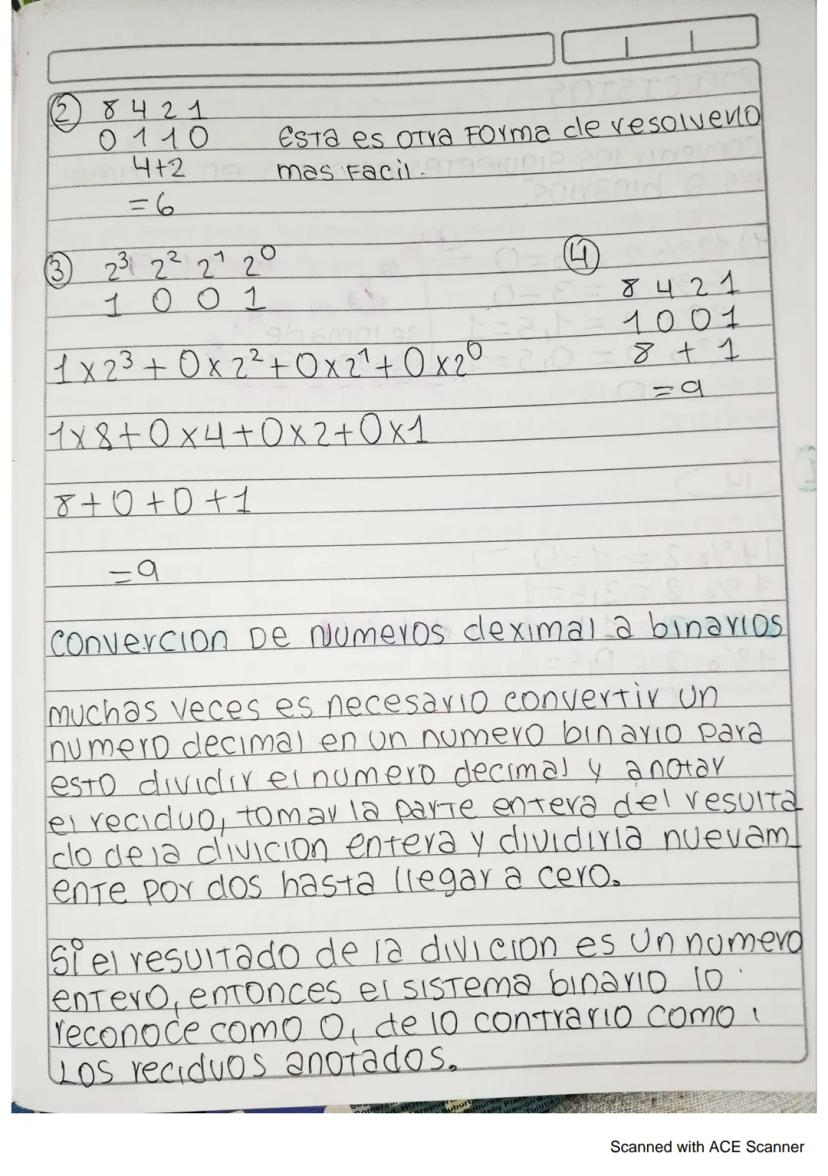 ② 8 4 2 1
0 1 1 0 Esta es otra forma de resolverlo
4+2 mas facil.
=6
③ 2³ 2² 2¹ 2⁰
1 0 0 1
1x2³ + 0x2² + 0x2¹ + 0x2⁰
1x8+0x4+0x2+0x1
8+0+0+1
=9
④
8 4 2 1
1 0 0 1
8 + 1
=9
convercion De numeros deximal a binarios
muchas veces es necesario convertir un
numero decimal en un numero binario para
esto dividir el numero decimal y anotar
el reciduo, tomar la parte entera del resulta
do de la divicion entera y dividirla nuevam
ente por dos hasta llegar a cero.
Si el resultado de la divicion es un numero
entero, entonces el sistema binario lo
reconoce como 0, de lo contrario como 1
Los reciduos anotados.
Scanned with ACE Scanner